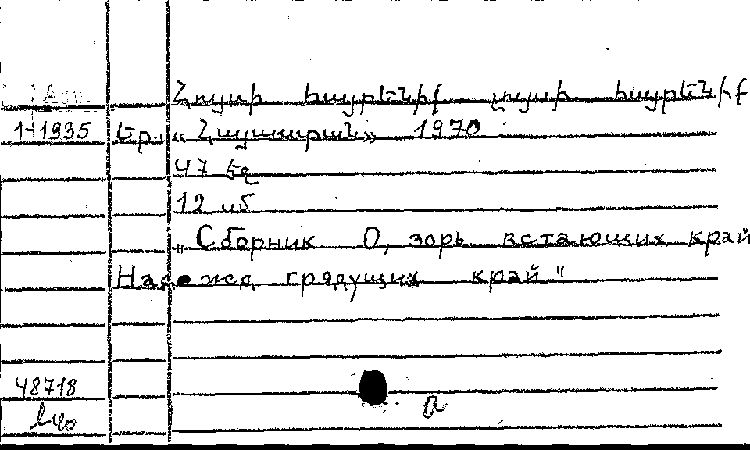 Հույսի հայրենիք լույսի հայրենիք
1-1935 Եր. «Հայաստան» 1970
47 էջ
12 սմ
„Сборник О, зорь встающих край
Надежд грядущих край"
48718